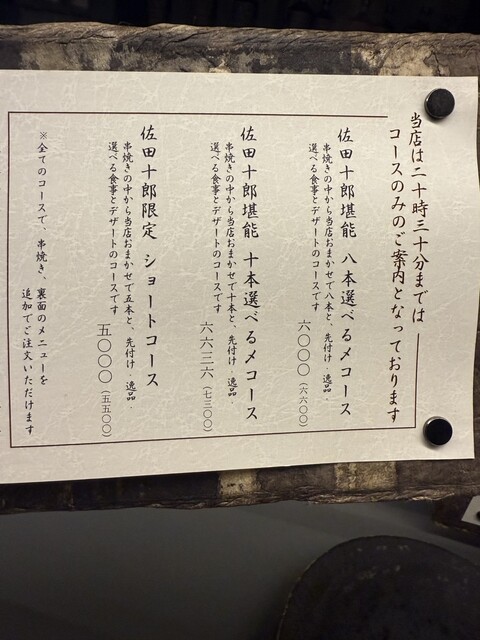 当店は二十時三十分までは
コースのみのご案内となっております
佐田十郎堪能 八本選べる〆コース
串焼きの中から当店おまかせで八本と、先付け・逸品・
選べる食事とデザートのコースです
六〇〇〇（六六〇〇）
佐田十郎堪能 十本選べる〆コース
串焼きの中から当店おまかせで十本と、先付け・逸品・
選べる食事とデザートのコースです
六六三六（七三〇〇）
佐田十郎限定 ショートコース
串焼きの中から当店おまかせで五本と、先付け・逸品・
選べる食事とデザートのコースです
五〇〇〇（五五〇〇）
※全てのコースで、串焼き、裏面のメニューを
追加でご注文いただけます